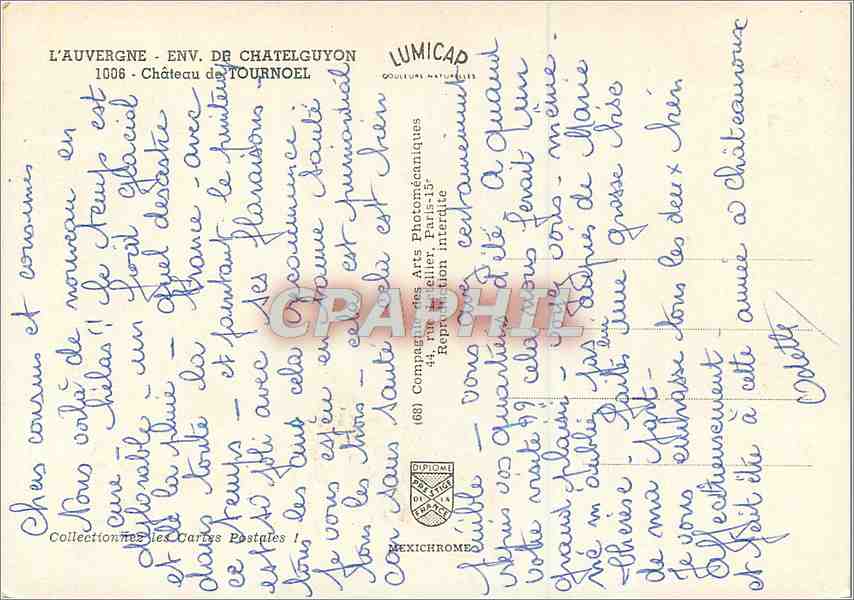 L'AUVERGNE - ENV. DE CHATELGUYON
1006 - Château de TOURNOEL
LUMICAP
COULEURS NATURELLES
(68) Compagnie des Arts Photomécaniques
44, rue Letellier, Paris-15e
Reproduction interdite
CPAPHIL
DIPLOME
PRESTIGE
DE LA
FRANCE
MEXICHROME
Collectionnez les Cartes Postales !
Chers cousins et cousines
Nous voilà de nouveau en
cure hélas !! Le temps est
déplorable - un froid glacial
et de la pluie - quel désastre
dans toute la France - avec
ce temps - et pourtant le printemps
est si joli avec ses floraisons -
tous les ans cela recommence
Je vous espère en bonne santé
tous les trois - cela est primordial
car sans santé cela est bien
pénible - vous avez certainement
repris vos quartiers d'été A quand
votre visite ?? cela nous ferait un
grand plaisir - chez vous-même -
ne m'oubliez pas auprès de Marie
Thérèse - Faites lui une grosse bise
de ma part -
Je vous embrasse tous les deux bien
Affectueusement
et peut être à cette année à Châteauroux
Odette